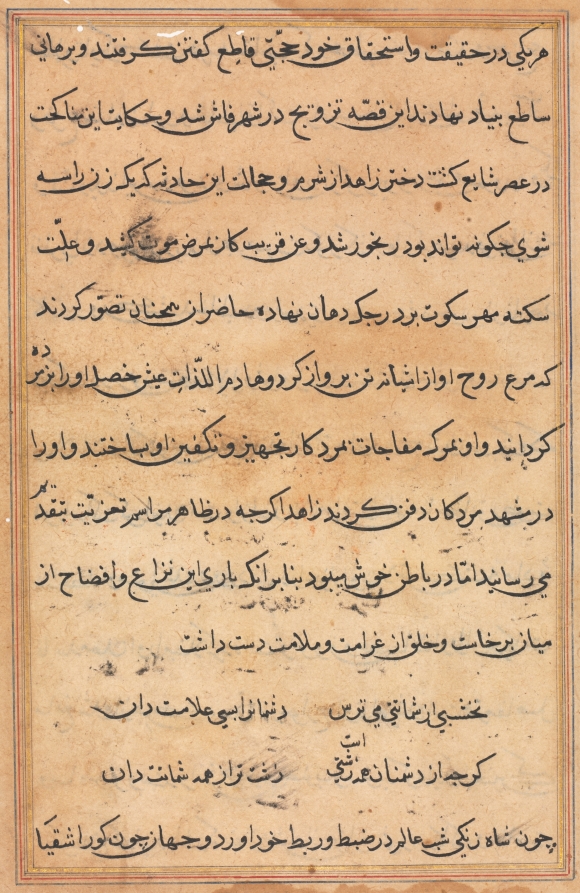 هر یکی در حقیقت و استحقاق خود حجّتی قاطع کفتن کرفتند و برهانی
ساطع بنیاد نهادند این قصّه تزویج در شهر فاش شد و حکایت این مناکحت
در عصر شایع کشت دختر زاهد از شرم و خجالت این حادثه که یک زن را سه
شوی جکونه تواند بود رنجور شد و عن قریب کار بمرض موت کشد و علّت
سکته مهر سکوت بر درجک دهان نهاده حاضران همجنان تصوّر کردند
که مرغ روح او از اشیانه تن برواز کرد و هادم اللذّات عیش خصل او را بزمرده
کردانید و او بمرک مفاجات بمرد کار تجهیز و تکفین او بساختند و او را
در مشهد مردکان دفن کردند زاهد اکرجه در ظاهر مراسم تعزیّت بتقدیم
می رسانید امّا در باطن خوش میبود بنا برانکه باری این نزاع و افضاح از
میان برخاست و خلق از غرامت و ملامت دست داشت
نخشبی از شماتتی می ترس دشمنانرا بسی علامت دان
کرجه از دشمنان همه زشتی است زشت تر از همه شماتت دان
چون شاه زنکی شب عالم در ضبط و ربط خود اورد و جهان چون کور اشقیا